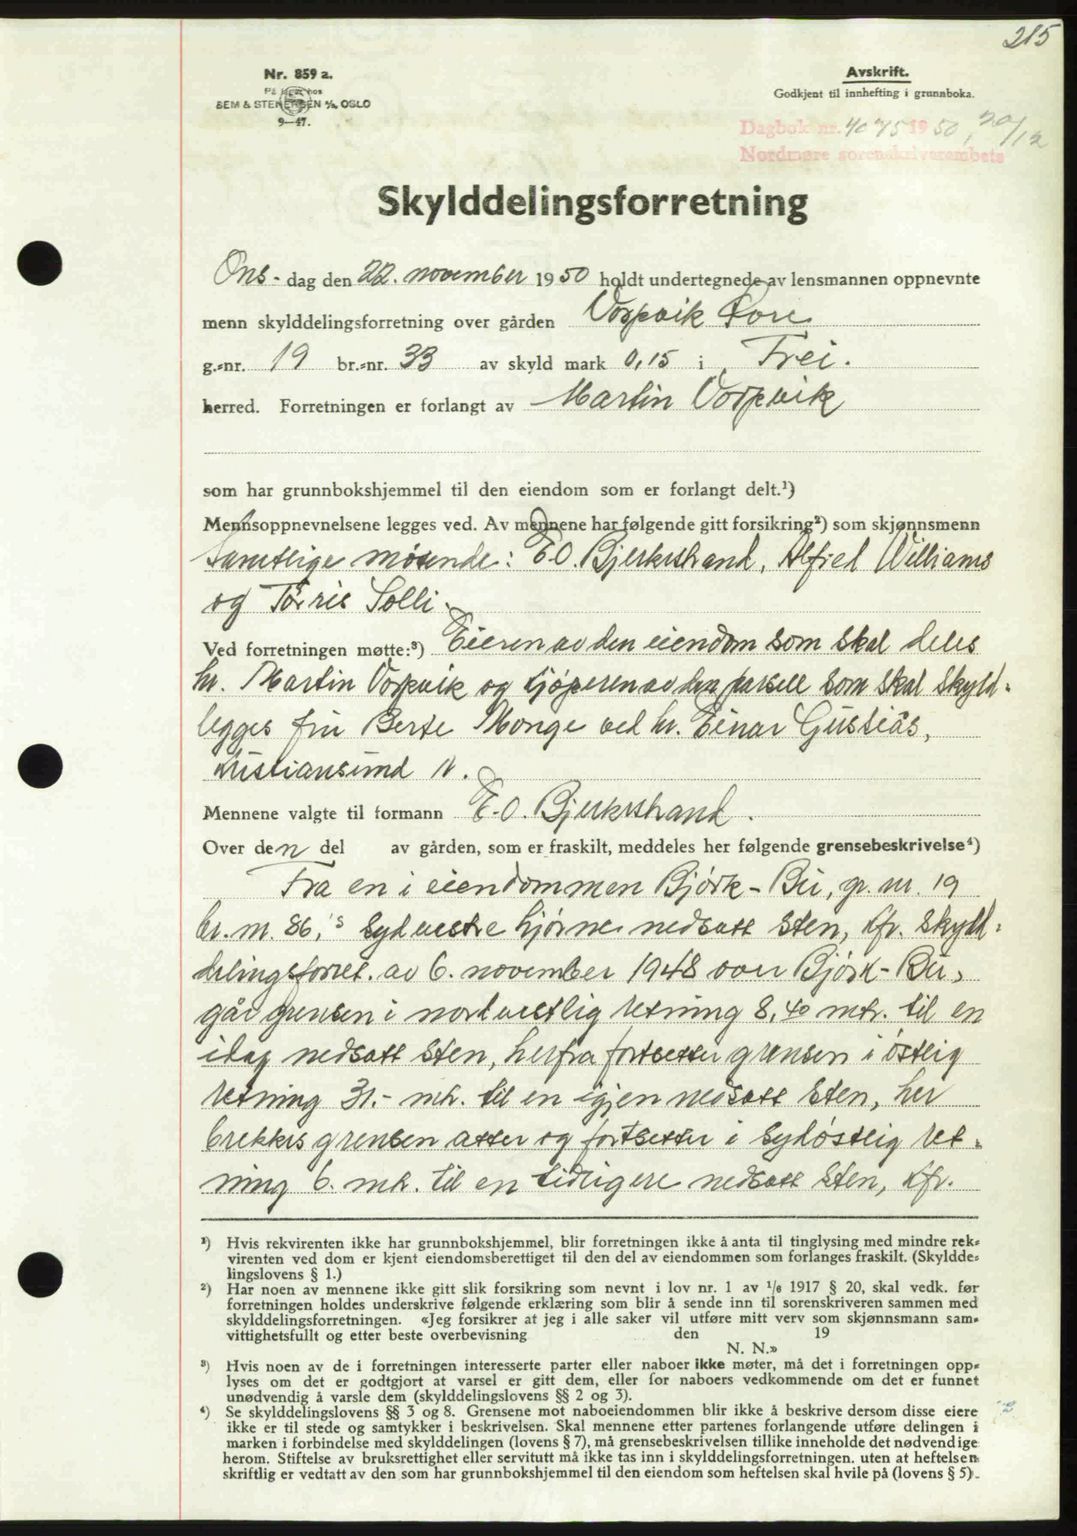 215
Nr. 859 a.
På lager hos
SEM & STENERSEN A/S, OSLO
9—47.
Avskrift.
Godkjent til innhefting i grunnboka.
Dagbok nr. 4075 1950, 20/12
Nordmøre sorenskriverembete
Skylddelingsforretning
Ons- dag den 22. november 1950 holdt undertegnede av lensmannen oppnevnte
menn skylddelingsforretning over gården Vorpvik
g.=nr. 19 br.=nr. 33 av skyld mark 0,15 i Frei.
herred. Forretningen er forlangt av Martin Vorpvik
som har grunnbokshjemmel til den eiendom som er forlangt delt.¹)
Mennsoppnevnelsene legges ved. Av mennene har følgende gitt forsikring²) som skjønnsmenn
Samtlige møtende: E.O. Bjerkestrand, Alfred Williams
og Tørris Solli.
Ved forretningen møtte:³) Eieren av den eiendom som skal deles
hr. Martin Vorpvik og kjøperen av den parsell som skal skyld=
legges fru Berte Monge ved hr. Einar Gustiås,
Kristiansund N.
Mennene valgte til formann E.O. Bjerkestrand.
Over den del av gården, som er fraskilt, meddeles her følgende grensebeskrivelse⁴)
Fra en i eiendommen Bjørk-Bu, gr. nr. 19
br. nr. 86,'s sydvestre hjørne nedsatt sten, kfr. skyld=
delingsforret. av 6. november 1948 over Bjørk-Bu,
går grensen i nordvestlig retning 8,40 mtr. til en
idag nedsatt sten, herfra fortsetter grensen i østlig
retning 31.- mtr. til en igjen nedsatt sten, her
brekkes grensen atter og fortsetter i sydøstlig ret=
ning 6. mtr. til en tidligere nedsatt sten, kfr.
¹) Hvis rekvirenten ikke har grunnbokshjemmel, blir forretningen ikke å anta til tinglysing med mindre rek=
virenten ved dom er kjent eiendomsberettiget til den del av eiendommen som forlanges fraskilt. (Skyldde=
lingslovens § 1.)
²) Har noen av mennene ikke gitt slik forsikring som nevnt i lov nr. 1 av 1/6 1917 § 20, skal vedk. før
forretningen holdes underskrive følgende erklæring som blir å sende inn til sorenskriveren sammen med
skylddelingsforretningen. «Jeg forsikrer at jeg i alle saker vil utføre mitt verv som skjønnsmann sam=
vittighetsfullt og etter beste overbevisning den 19
N. N.»
³) Hvis noen av de i forretningen interesserte parter eller naboer ikke møter, må det i forretningen opp=
lyses om det er godtgjort at varsel er gitt dem, eller for naboers vedkommende om det er funnet
unødvendig å varsle dem (skylddelingslovens §§ 2 og 3).
⁴) Se skylddelingslovens §§ 3 og 8. Grensene mot naboeiendommen blir ikke å beskrive dersom disse eiere
ikke er til stede og samtykker i beskrivelsen. Skal mennene etter partenes forlangende utføre delingen i
marken i forbindelse med skylddelingen (lovens § 7), må grensebeskrivelsen tillike inneholde det nødvendige
herom. Stiftelse av bruksrettighet eller servitutt må ikke tas inn i skylddelingsforretningen. uten at heftelsen
skriftlig er vedtatt av den som har grunnbokshjemmel til den eiendom som heftelsen skal hvile på (lovens § 5).